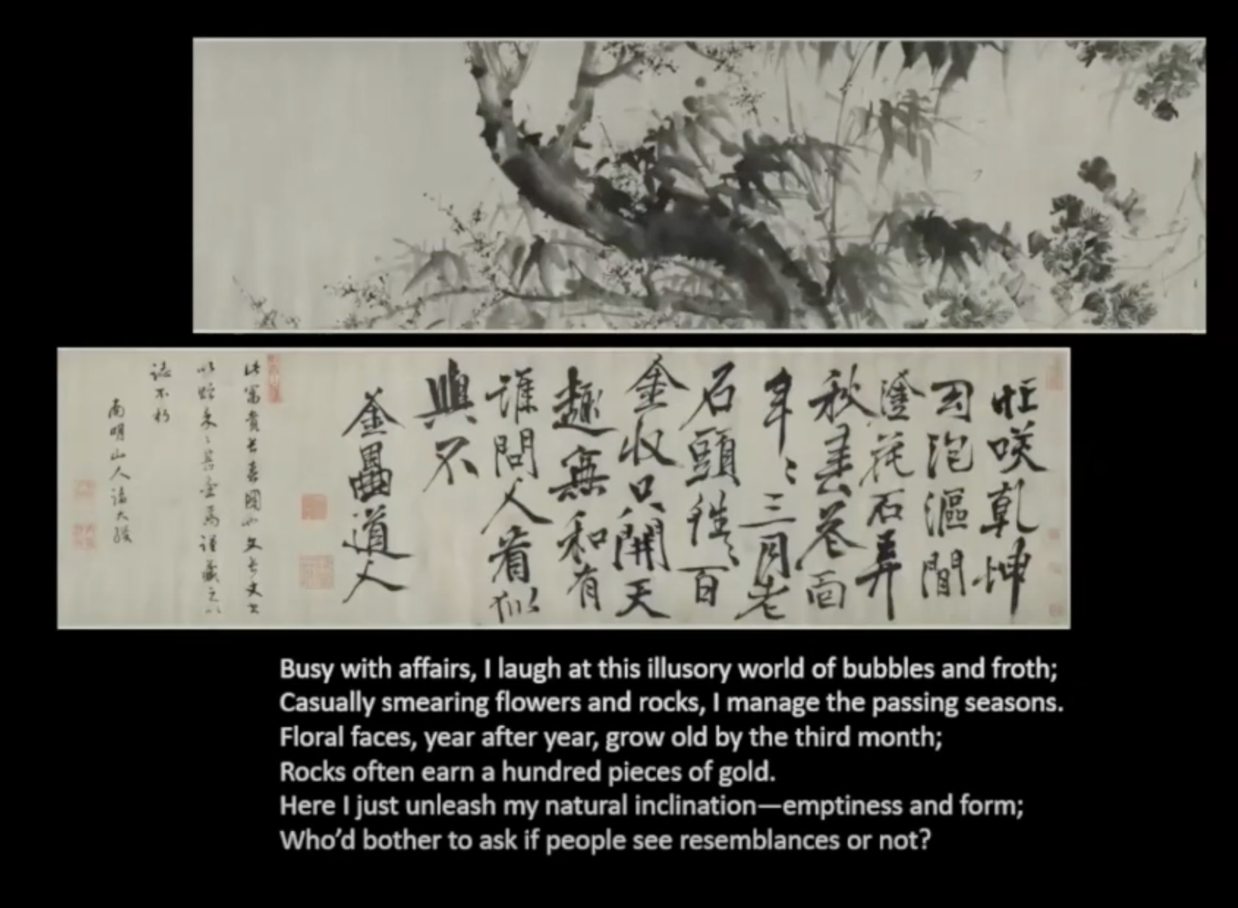 忙咲乾坤
泡漚閒
塗花石弄
秋花面
年々三月老
石頭往々百
金収只開天
趣無和有
誰問人看似
與不
金罍道人
此富貴長春圖文長文
以贈謹藏之以
誌不朽
南明山人諸大綬
Busy with affairs, I laugh at this illusory world of bubbles and froth;
Casually smearing flowers and rocks, I manage the passing seasons.
Floral faces, year after year, grow old by the third month;
Rocks often earn a hundred pieces of gold.
Here I just unleash my natural inclination—emptiness and form;
Who’d bother to ask if people see resemblances or not?